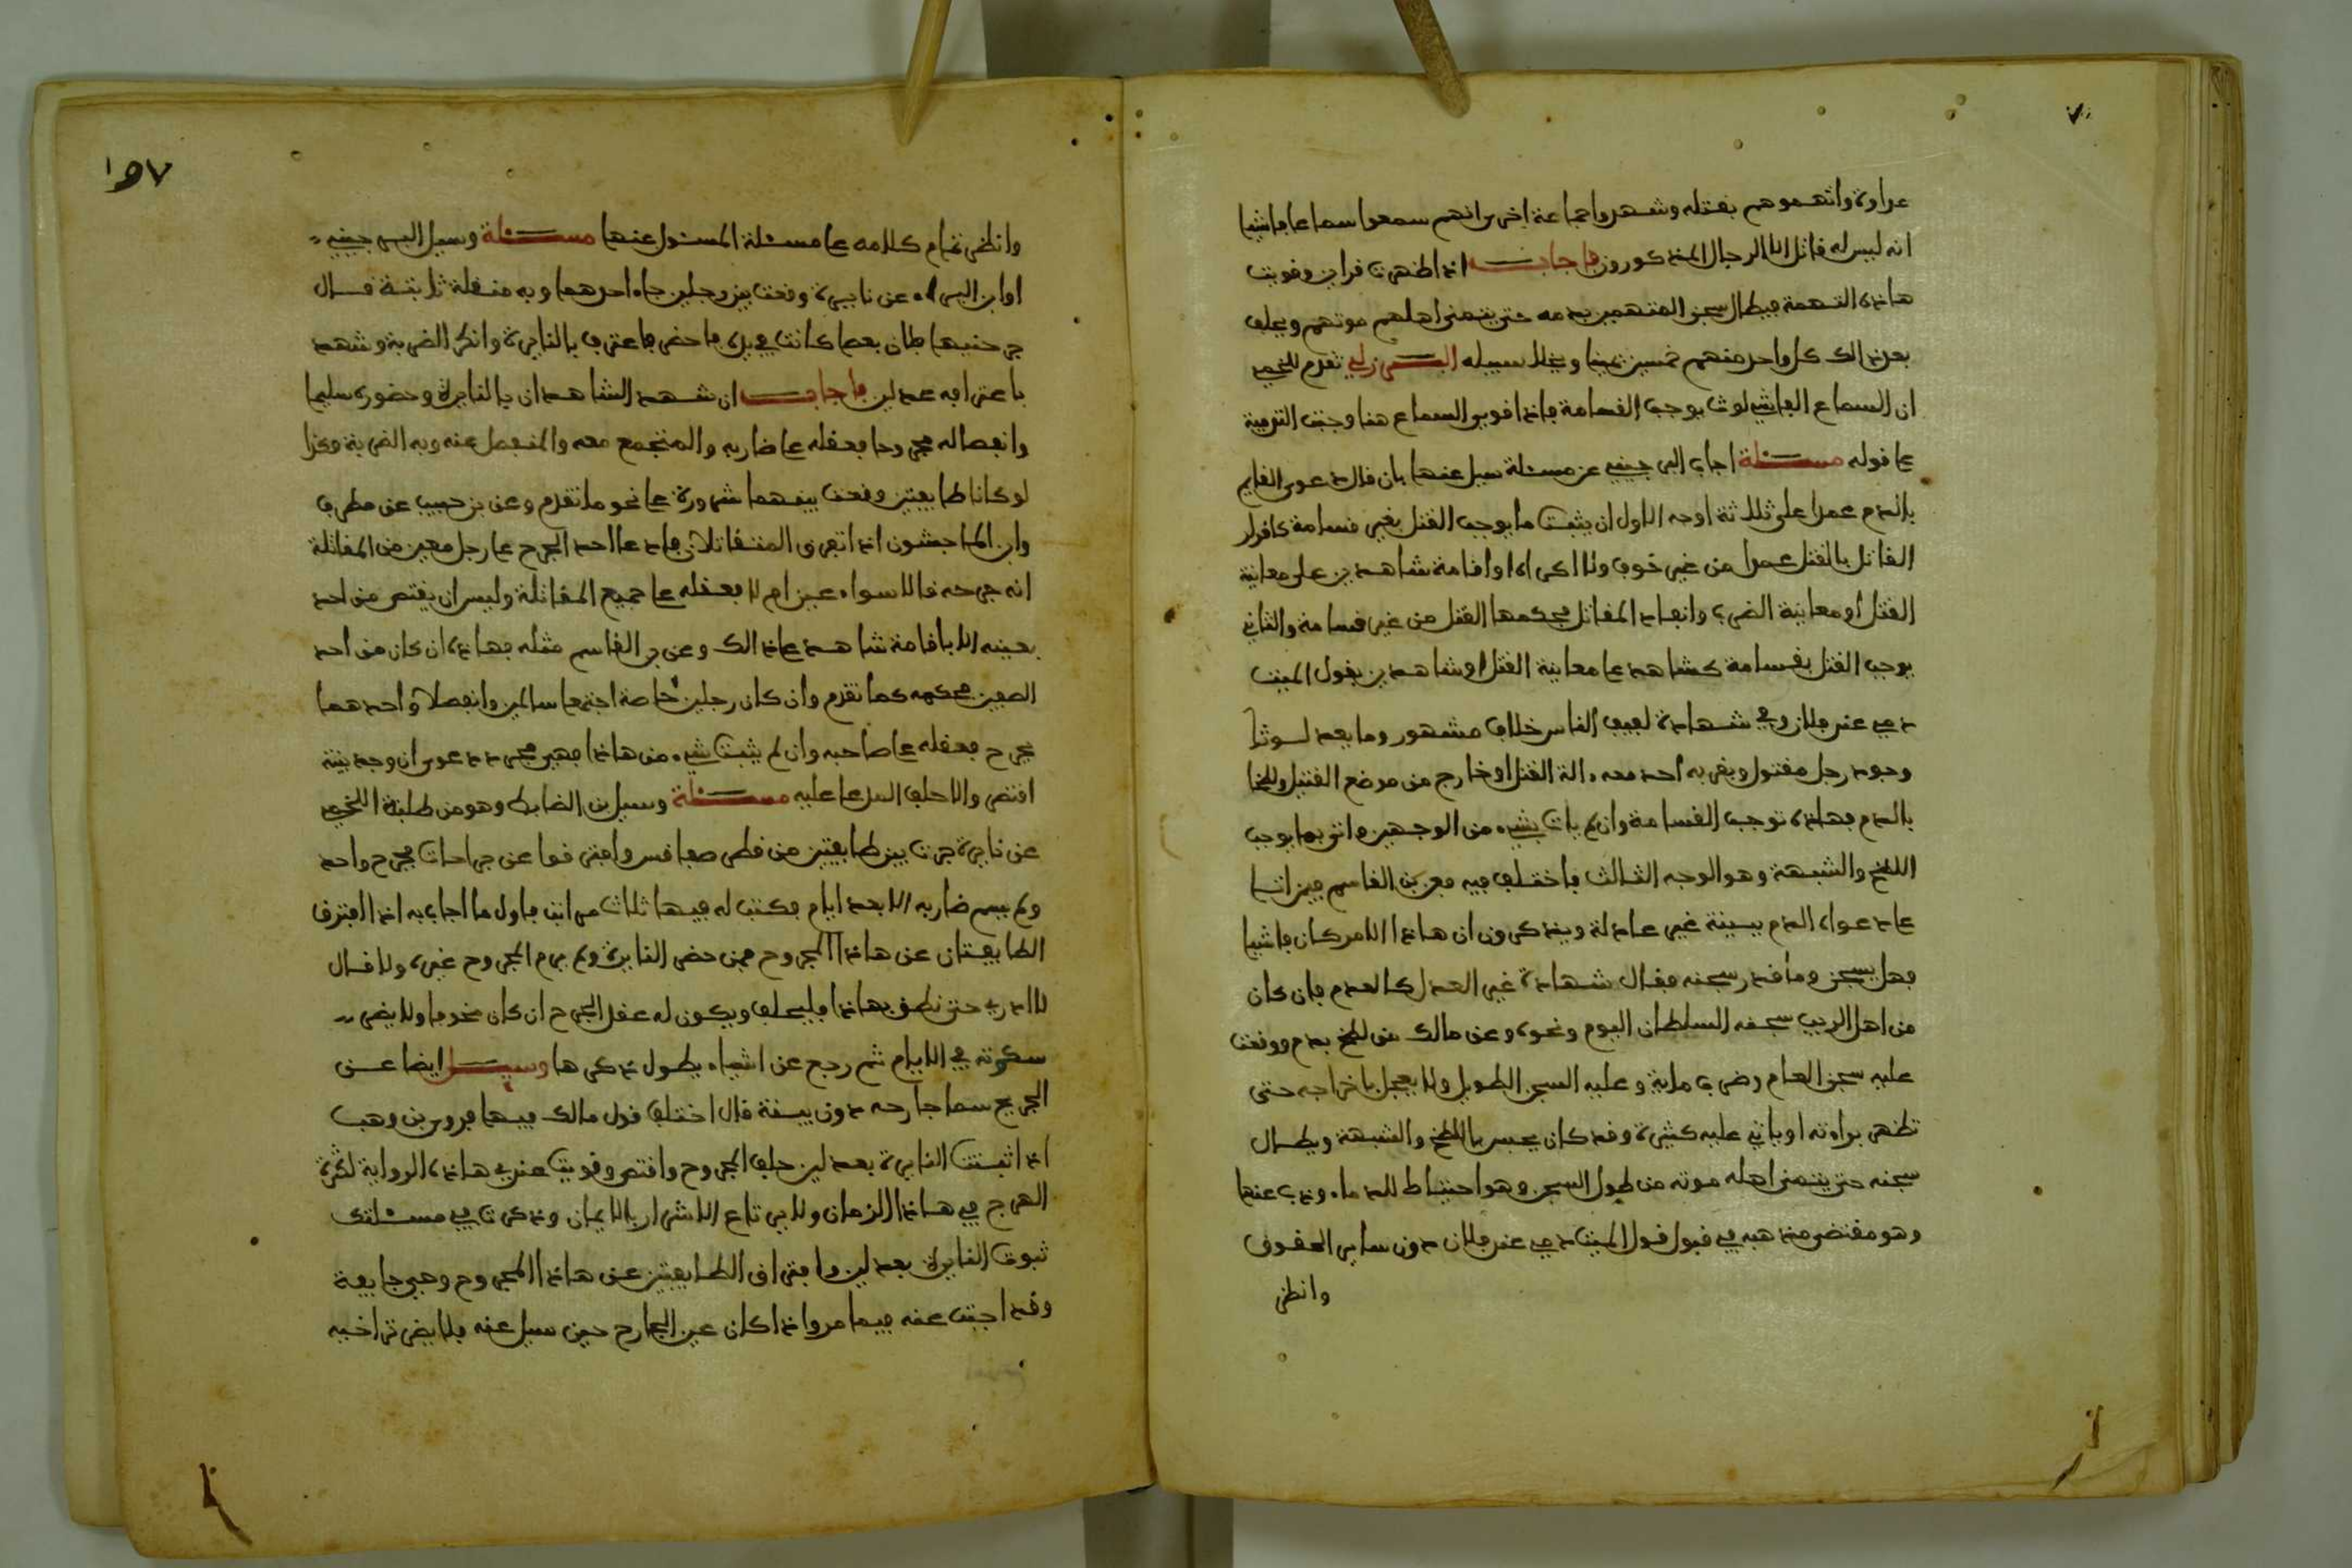 عداوة واتهموهم بقتله وشهد واجماعة اخر برانهم سمعوا سماعا فاشيا
انه ليس له قاتل الا الرجال المذكورون فاجاب اذا ظهرت قراين وقويت
هاذه التهمة فيطال سجن المتهمين بدمه حتى يتمنى اهلهم موتهم ويحلف
بعد ذالك كل واحد منهم خمسين يمينا ويخلا سبيله البرزلي تقدم للخمي
ان السماع الفاشي لوث يوجب القسامة فاذا قوي السماع هنا وجبت التوفية
على قوله مسئلة اجاب ابن عن مسئلة سيل عنها بان قال دعوى القايم
بالدم عمدا على ثلاثة اوجه الاول ان يثبت ما يوجب القتل بغير قسامة كاقرار
القاتل بالقتل عمدا من غير خوف ولا اكراه او اقامة شاهدين على معاينة
القتل او معاينة الضرب وانفاد المقاتل فحكمها القتل من غير قسامة والثاني
يوجب القتل بقسامة كشاهد على معاينة القتل او شاهدين بقول الميت
دمي عند فلان وفي شهادة لفيف الناس خلاف مشهور وما يعد لوثا
وجود رجل مقتول وبقربه احد معه ءالة القتل او خارج من موضع القتيل ملطخا
بالدم فهاذه توجب القسامة وان لم يات بشيء من الوجهين واتى بما يوجب
اللطخ والشبهة وهو الوجه الثالث فاختلف فيه فعن بن القاسم فيمن اتا
على دعواه الدم ببينة غير عادلة ويذكرون ان هاذا الامر كان فاشيا
فهل يسجن وما قدر سجنه فقال شهادة غير العدل كالعدم فان كان
من اهل الريب سجنه السلطان اليوم ونحوه وعن مالك من لطخ بدم ووقعت
عليه سجن العام وضرب ماية وعليه السجن الطويل ولا يعجل باخراجه حتى
تظهر براءته او ياتي عليه كثيره وقد كان يحبس باللطخ والشبهة ويطال
سجنه حتى يتمنى اهله موته من طول السجن وهو احتياط للدماء وذب عنها
وهو مقتضى مذهبه في قبول قول الميت دمي عند فلان دون ساير الحقوق
وانظر
١٥٧
وانظر تمام كلامه على مسئلة المسئول عنها مسئلة وسيل ابن
او ابن البراء عن نايرة وقعت بين رجلين جاء احدهما وبه منقلة ثابتة قال
جرحنيها فلان بعصا كانت في يده فاحضر فاعترف بالنايرة وانكر الضربة وشهد
باعترافه عدلين فاجاب ان شهد الشاهدان بالنايرة وحضوره سليما
وانفصاله مجروحا فعقله على ضاربه والمتجمع معه والمنفصل عنه وبه الضربة وكذا
لو كانا طايفتين وقعت بينهما على نحو ما تقدم وعن بن حبيب عن مطرف
وابن الماجشون اذا تفرق المتقاتلان فادعا احد الجرح على رجل معين من المقاتلة
انه جرحه قالا سواء عين ام لا فعقله على جميع المقاتلة وليس ان يقتص من احد
بعينه الا باقامة شاهد على ذالك وعن بن القاسم مثله فهاذه ان كان من احد
الصفين فحكمه كما تقدم وان كان رجلين خاصة اجتمعا سالمين وانفصلا واحدهما
بجرح فعقله على صاحبه وان لم يثبت شيء من هاذا فهي مجرد دعوى ان وجد بينة
اقتص والا حلف المدعا عليه مسئلة وسيل بن الضابط وهو من طلبة اللخمي
عن نايرة جرت بين طايفتين من قطر صفاقس وافترقوا عن جراحات فجرح واحد
ولم يسم ضاربه الا بعد ايام فكتب له فيها ثلاث مراتب فاول ما اجاب به اذا افترق
الطايفتان عن هاذا المجروح ممن حضر النايرة ولم يرم المجروح غيره ولا قال
لا ادري حتى نطق بهاذا فليحلف ويكون له عقل الجرح ان كان مخوفا ولا يضر
سكوته في الايام ثم رجع عن اشياء يطول ذكرها وسيل ايضا عن
الجريح سما جارحه دون بينة قال اختلف قول مالك فيها فروى بن وهب
اذا ثبتت النايرة بعدلين حلف المجروح واقتص وقويت عندي هاذه الرواية لكثرة
الهرج في هاذا الزمان ولا يرتاع الاشرار بالايمان وذكرت في مسئلتك
ثبوت النايرة بعدلين وافتراق الطايفتين عن هاذا المجروح وهي جايفة
وقد اجبت عنه فيما مر واذا كان عين الجارح حين سيل عنه فلا يضر تراخيه